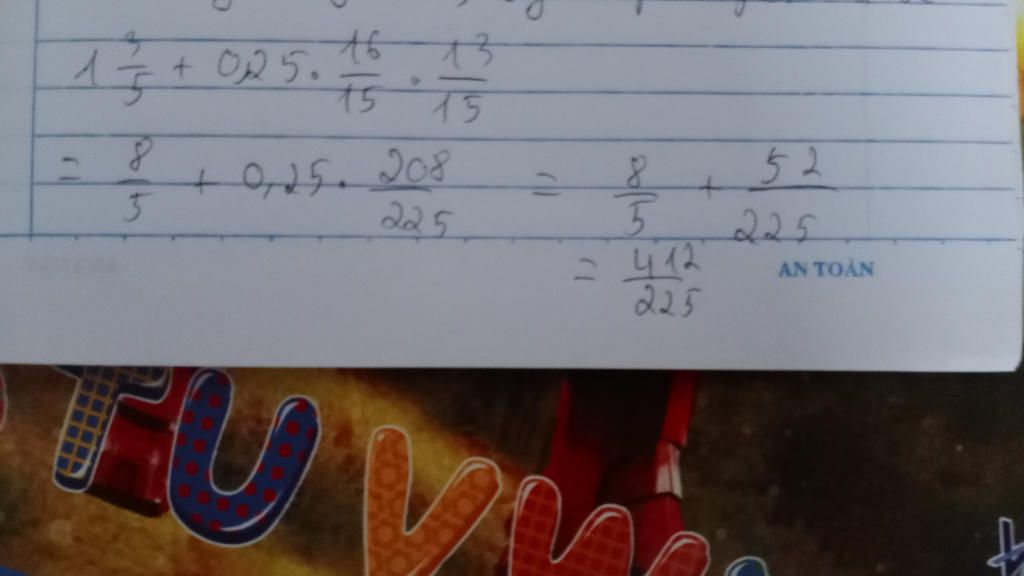 1 3/5 + 0,25 . 16/15 . 13/15
= 8/5 + 0,25 . 208/225 = 8/5 + 52/225
= 412/225
AN TOÀN
TU